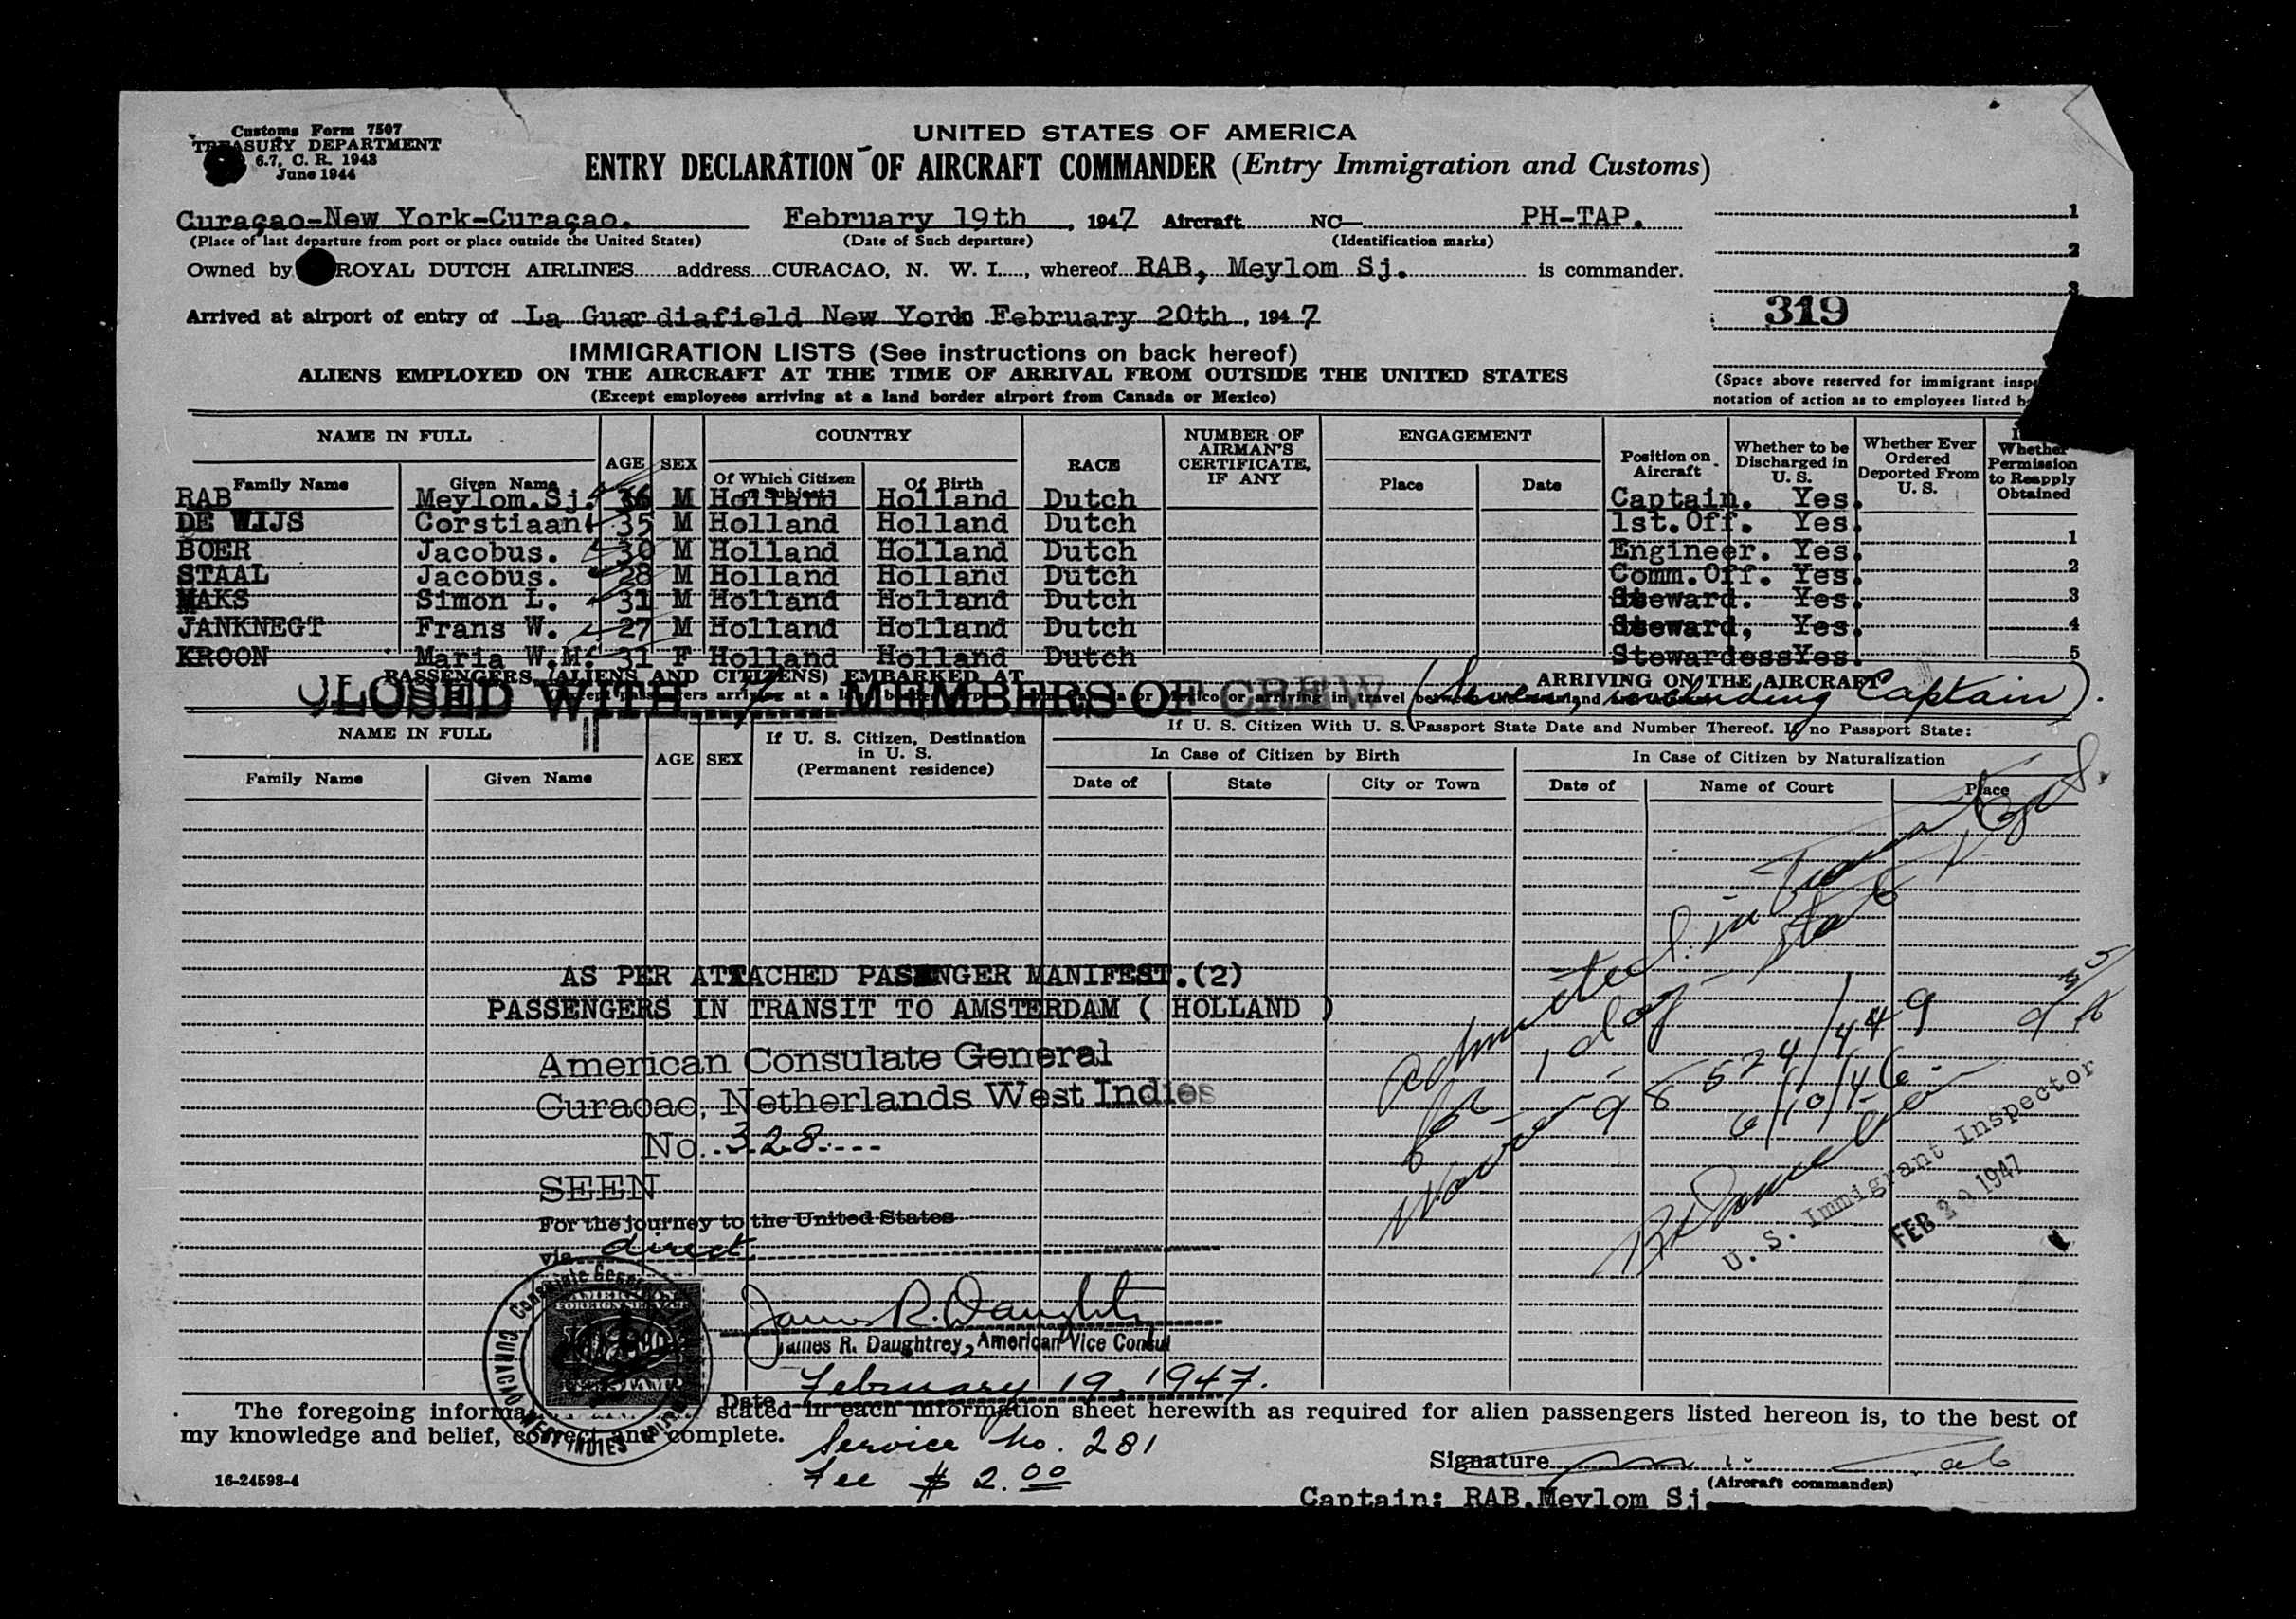 Customs Form 7507
TREASURY DEPARTMENT
6.7, C. R. 1943
June 1944
UNITED STATES OF AMERICA
ENTRY DECLARATION OF AIRCRAFT COMMANDER (Entry Immigration and Customs)
Curaçao-New York-Curaçao. February 19th, 1947 Aircraft NC— PH-TAP.
(Place of last departure from port or place outside the United States) (Date of Such departure) (Identification marks)
Owned by ROYAL DUTCH AIRLINES address CURACAO, N. W. I., whereof RAB, Meylom Sj. is commander.
Arrived at airport of entry of La Guardiafield New York February 20th, 1947
1
2
3
319
IMMIGRATION LISTS (See instructions on back hereof)
ALIENS EMPLOYED ON THE AIRCRAFT AT THE TIME OF ARRIVAL FROM OUTSIDE THE UNITED STATES
(Except employees arriving at a land border airport from Canada or Mexico)
(Space above reserved for immigrant
notation of action as to employees listed
NAME IN FULL AGE SEX COUNTRY RACE NUMBER OF AIRMAN'S CERTIFICATE, IF ANY ENGAGEMENT Position on Aircraft Whether to be Discharged in U. S. Whether Ever Ordered Deported From U. S. Whether Permission to Reapply Obtained
Family Name Given Name Of Which Citizen or Subject Of Birth Place Date
RAB Meylom.Sj. 36 M Holland Holland Dutch Captain. Yes.
DE WIJS Corstiaan 35 M Holland Holland Dutch 1st.Off. Yes. 1
BOER Jacobus. 30 M Holland Holland Dutch Engineer. Yes. 2
STAAL Jacobus. 28 M Holland Holland Dutch Comm.Off. Yes. 3
MAKS Simon L. 31 M Holland Holland Dutch Steward. Yes. 4
JANKNEGT Frans W. 27 M Holland Holland Dutch Steward, Yes. 5
KROON Maria W.M. 31 F Holland Holland Dutch Stewardess Yes.
PASSENGERS (ALIENS AND CITIZENS) EMBARKED AT ARRIVING ON THE AIRCRAFT
CLOSED WITH 7 MEMBERS OF CREW (Seven, including Captain).
NAME IN FULL AGE SEX If U. S. Citizen, Destination in U. S. (Permanent residence) If U. S. Citizen With U. S. Passport State Date and Number Thereof. If no Passport State:
In Case of Citizen by Birth In Case of Citizen by Naturalization
Family Name Given Name Date of State City or Town Date of Name of Court Place
AS PER ATTACHED PASENGER MANIFEST.(2)
PASSENGERS IN TRANSIT TO AMSTERDAM ( HOLLAND )
Admitted in Transit
for 1 day
Waiver 98524/449
6/10/46
U. S. Immigrant Inspector
FEB 20 1947
American Consulate General
Curacao, Netherlands West Indies
No. 328
SEEN
For the journey to the United States
via direct
James R. Daughtrey
James R. Daughtrey, American Vice Consul
Date February 19, 1947.
Service No. 281
Fee $ 2.00
CURACAO WEST INDIES
The foregoing informa stated in each information sheet herewith as required for alien passengers listed hereon is, to the best of
my knowledge and belief, correct and complete.
Signature
(Aircraft commander)
16-24598-4
Captain: RAB.Meylom Sj.